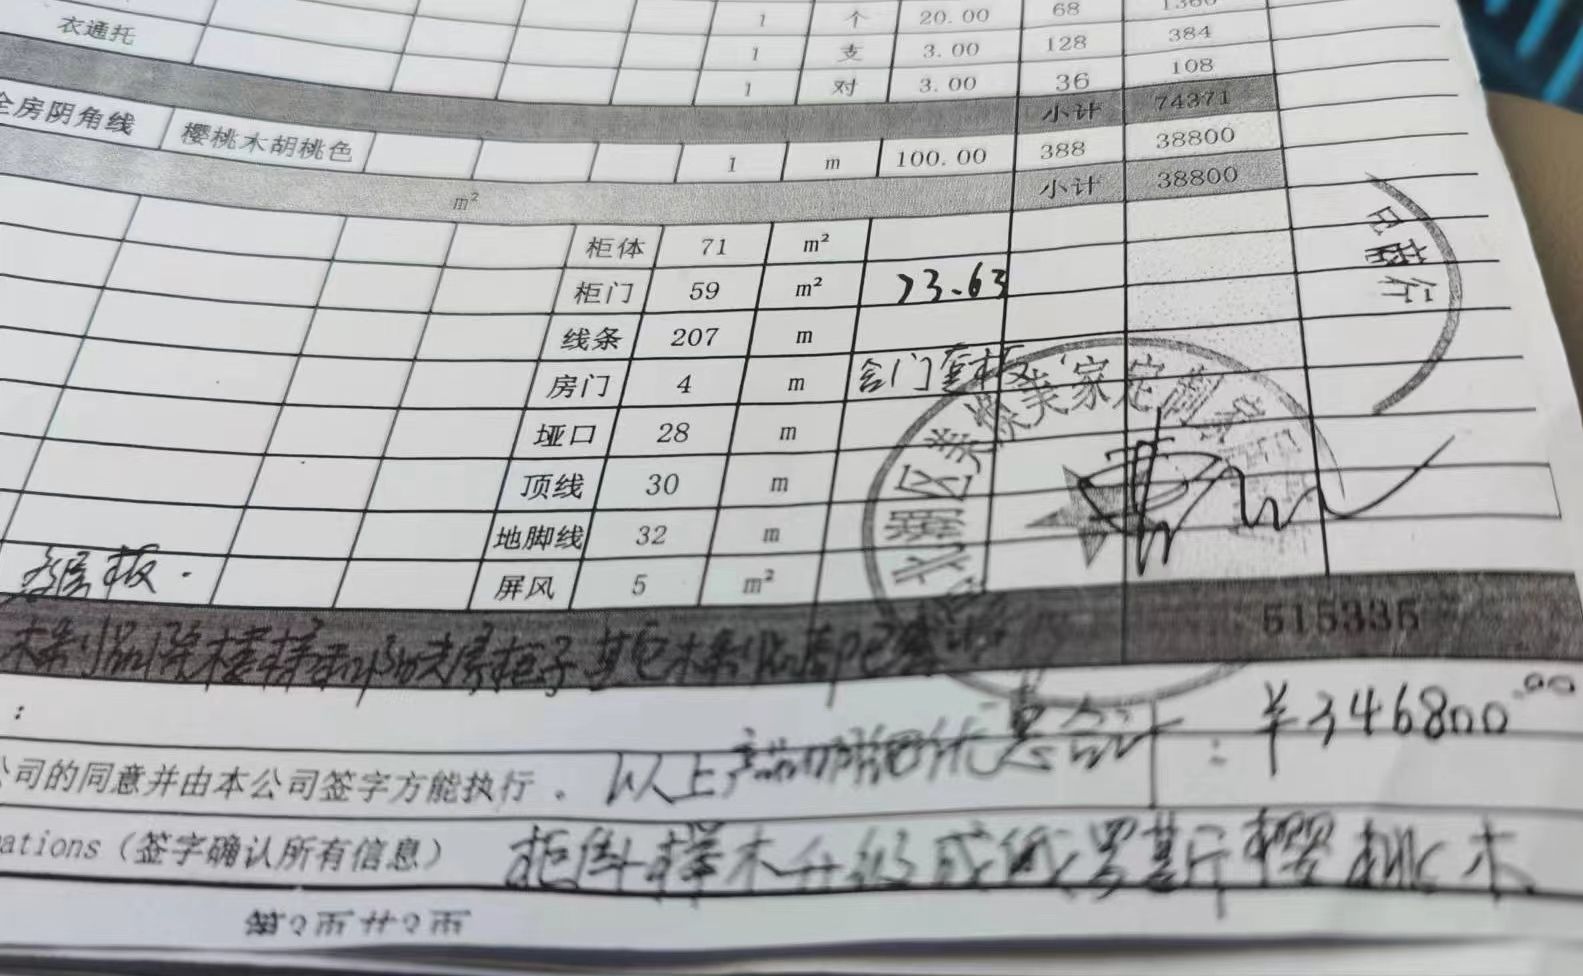 1 个 20.00 68 1360
衣通托 1 支 3.00 128 384
1 对 3.00 36 108
小计 74371
全房阴角线 樱桃木胡桃色 1 m 100.00 388 38800
m² 小计 38800
柜体 71 m²
柜门 59 m² 73.63
线条 207 m
房门 4 m 含门套板
垭口 28 m
顶线 30 m
地脚线 32 m
屏风 5 m²
515335
木制品 其它木制品
:
以上产品 优惠总合计: ¥346800.00
公司的同意并由本公司签字方能执行。
ations (签字确认所有信息) 柜体樟木升级成俄罗斯樱桃木
第3页共3页
美家定制家居